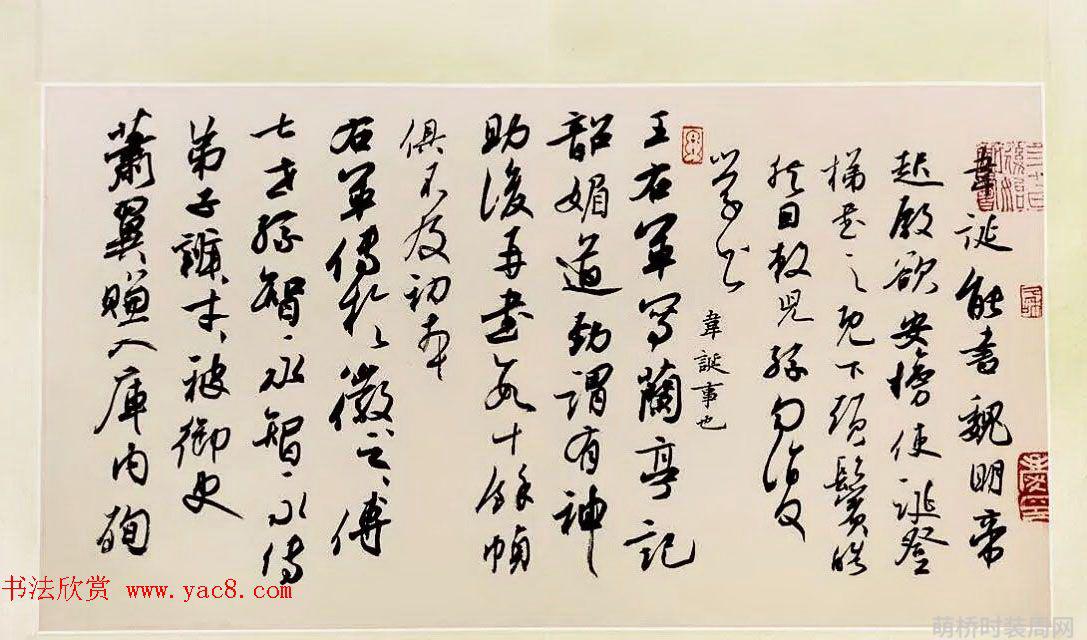 韋誕能書魏明帝
起殿欲安榜使誕登
梯書之既下頭鬢皓
然因敕兒孫勿復
學書
韋誕事也
王右軍寫蘭亭記
韶媚遒勁謂有神
助後再書數十餘幀
俱不及初本
右軍傳於徽之、傳
七世孫智永智永傳
弟子辯才被御史
蕭翼賺入庫內殉
书法欣赏 www.yac8.com
萌桥时装周网